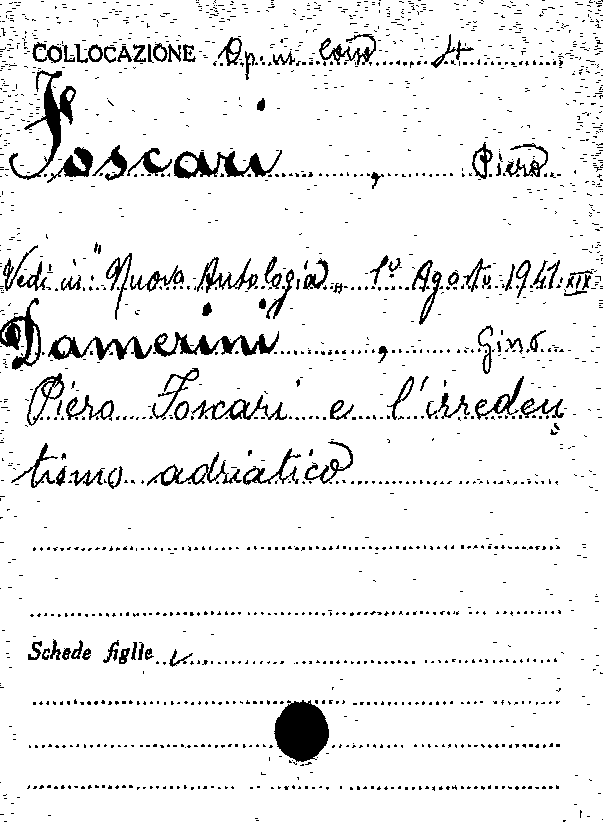 COLLOCAZIONE Op. in Corso 4
Foscari, Piero
Vedi in: "Nuova Antologia„ 1º Agosto 1941. XIX
Damerini, Gino
Piero Foscari e l'irreden
tismo adriatico
Schede figlie